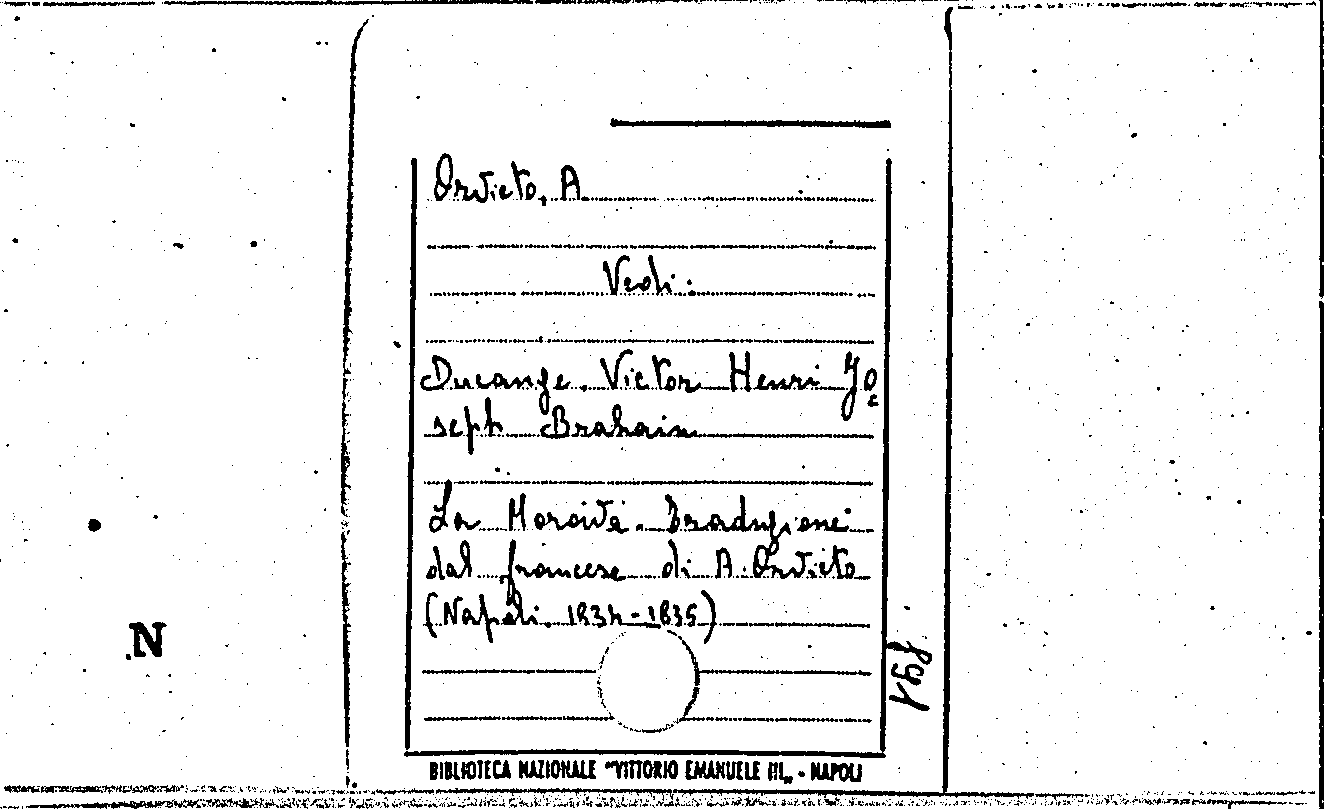 Orvieto, A
Vedi:
Ducange, Victor Henri Jo
seph Brahain
La Moraità. Traduzione
dal francese di A. Orvieto
(Napoli. 1834-1835)
N
BIBLIOTECA NAZIONALE "VITTORIO EMANUELE III„ - NAPOLI